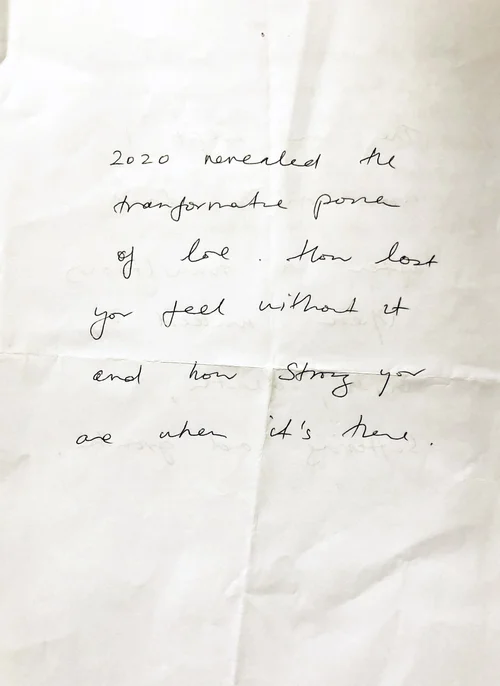 2020 revealed the
tranformative power
of love. How lost
you feel without it
and how strong you
are when it's there.